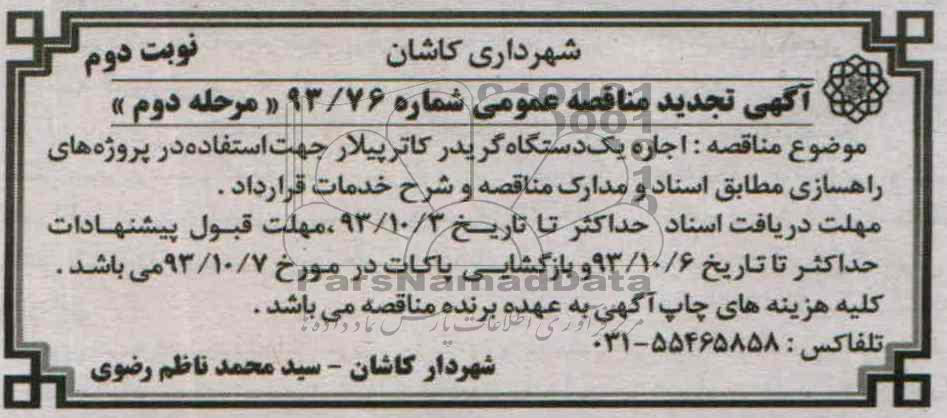 شهرداری کاشان
نوبت دوم
آگهی تجدید مناقصه عمومی شماره ۹۳/۷۶ « مرحله دوم »
موضوع مناقصه : اجاره یک‌دستگاه گریدر کاترپیلار جهت‌استفاده‌در پروژه‌های
راهسازی مطابق اسناد و مدارک مناقصه و شرح خدمات قرارداد .
مهلت دریافت اسناد حداکثر تا تاریخ ۹۳/۱۰/۳ ،مهلت قبول پیشنهادات
حداکثر تا تاریخ ۹۳/۱۰/۶و بازگشایی پاکات در مورخ ۹۳/۱۰/۷می باشد .
ParsNamadData
کلیه هزینه های چاپ آگهی به عهده برنده مناقصه می باشد .
مرکز فرآوری اطلاعات پارس نماد داده ها
تلفاکس : ۵۵۴۶۵۸۵۸-۰۳۱
شهردار کاشان - سید محمد ناظم رضوی